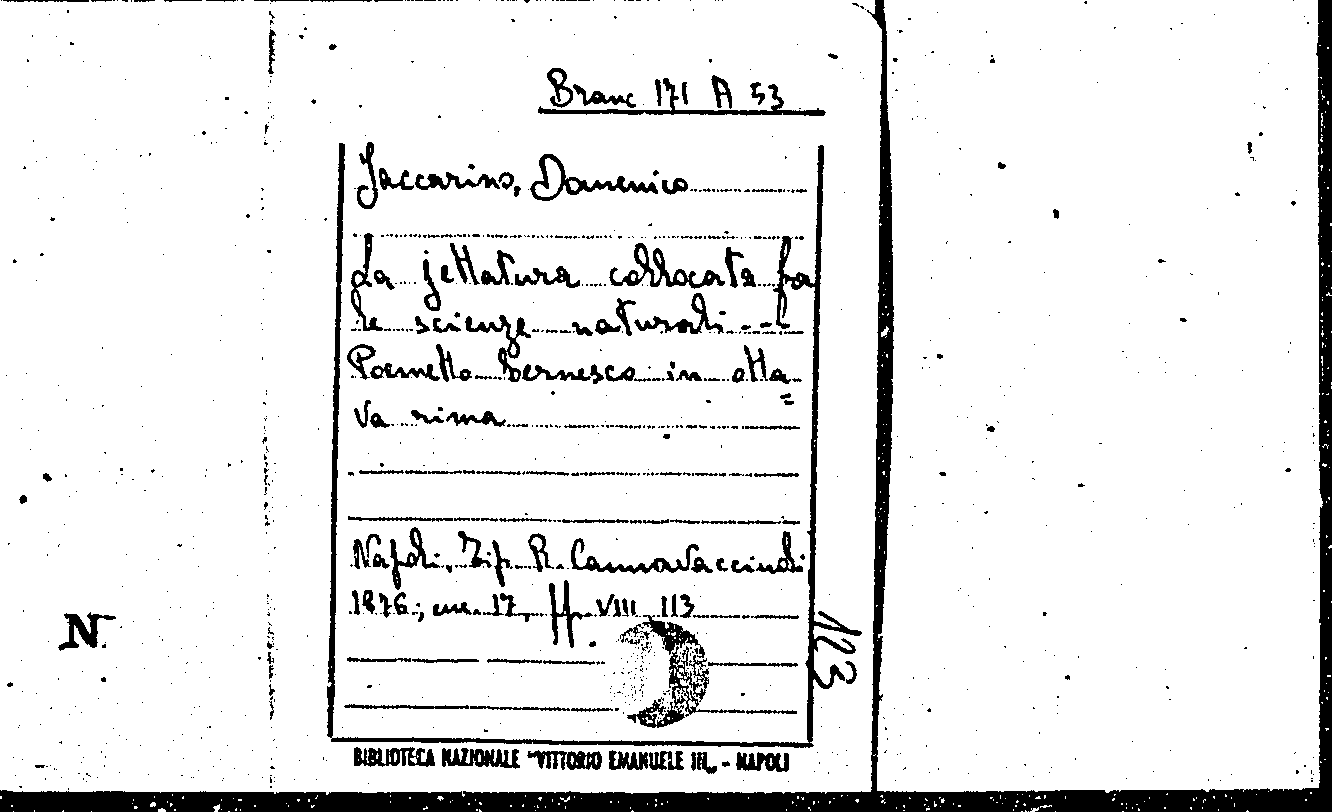 Branc 171 A 53
Jaccarino, Domenico
La jettatura collocata fra
le scienze naturali ---
Poemetto bernesco in otta
=
va rima
Napoli, Tip. R. Cannavacciuoli
1876; cm. 17, pp. VIII 113
N
123
BIBLIOTECA NAZIONALE "VITTORIO EMANUELE III„ - NAPOLI